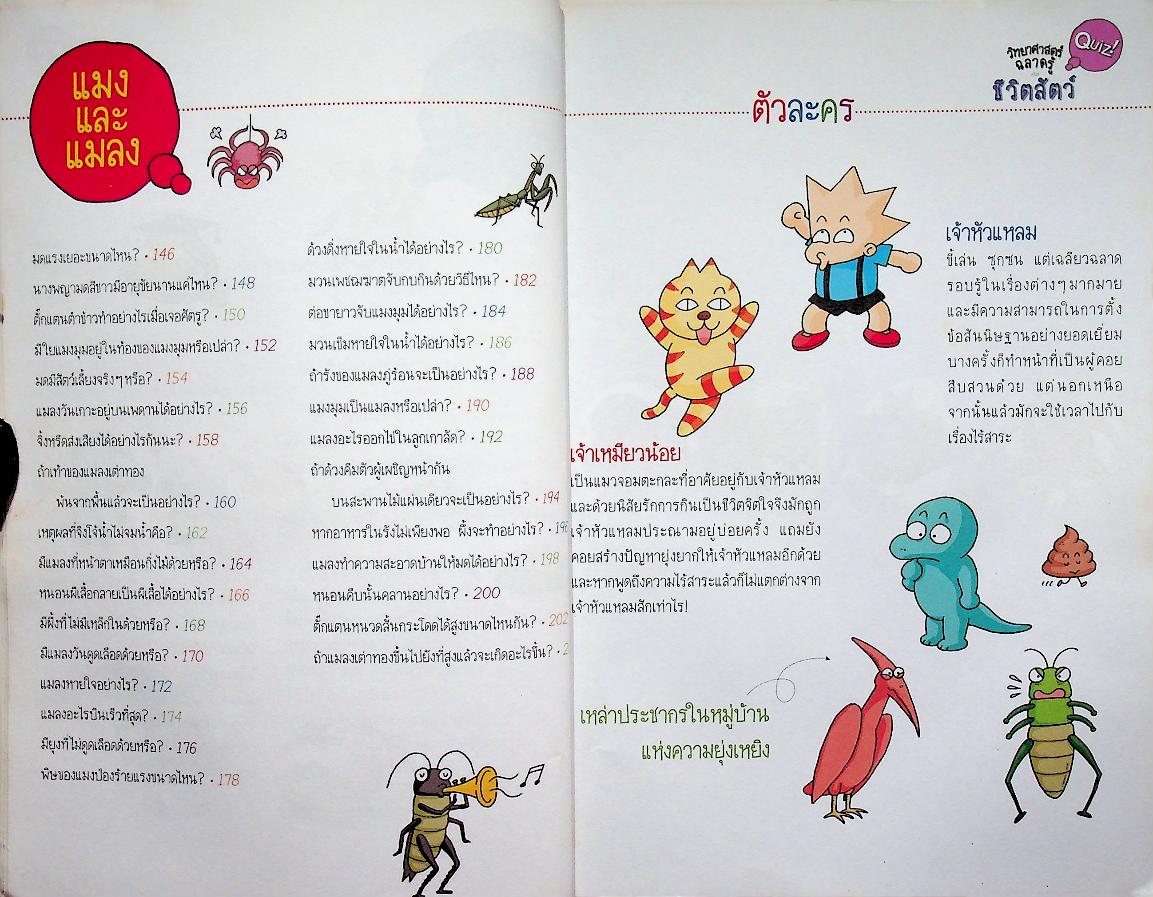 แมง
และ
แมลง
มดแรงเยอะขนาดไหน? • 146
นางพญามดสีขาวมีอายุขัยนานแค่ไหน? • 148
ตั๊กแตนตำข้าวทำอย่างไรเมื่อเจอศัตรู? • 150
มีใยแมงมุมอยู่ในท้องของแมงมุมหรือเปล่า? • 152
มดมีสัตว์เลี้ยงจริงๆ หรือ? • 154
แมลงวันเกาะอยู่บนเพดานได้อย่างไร? • 156
จิ้งหรีดส่งเสียงได้อย่างไรกันนะ? • 158
ถ้าเท้าของแมลงเต่าทอง
พ้นจากพื้นแล้วจะเป็นอย่างไร? • 160
เหตุผลที่จิงโจ้น้ำไม่จมน้ำคือ? • 162
มีแมลงที่หน้าตาเหมือนกิ่งไม้ด้วยหรือ? • 164
หนอนผีเสื้อกลายเป็นผีเสื้อได้อย่างไร? • 166
มีผึ้งที่ไม่มีเหล็กในด้วยหรือ? • 168
มีแมลงวันดูดเลือดด้วยหรือ? • 170
แมลงหายใจอย่างไร? • 172
แมลงอะไรบินเร็วที่สุด? • 174
มียุงที่ไม่ดูดเลือดด้วยหรือ? • 176
พิษของแมงป่องร้ายแรงขนาดไหน? • 178
ด้วงดิ่งหายใจในน้ำได้อย่างไร? • 180
มวนเพชฌฆาตจับกบกินด้วยวิธีไหน? • 182
ต่อขายาวจับแมงมุมได้อย่างไร? • 184
มวนเข็มหายใจในน้ำได้อย่างไร? • 186
ถ้ารังของแมลงภู่ร้อนจะเป็นอย่างไร? • 188
แมงมุมเป็นแมลงหรือเปล่า? • 190
แมลงอะไรออกไข่ในลูกเกาลัด? • 192
ถ้าด้วงคีมตัวผู้เผชิญหน้ากัน
บนสะพานไม้แผ่นเดียวจะเป็นอย่างไร? • 194
หากอาหารในรังไม่เพียงพอ ผึ้งจะทำอย่างไร? •
แมลงทำความสะอาดบ้านให้มดได้อย่างไร? • 198
หนอนคืบนั้นคลานอย่างไร? • 200
ตั๊กแตนหนวดสั้นกระโดดได้สูงขนาดไหนกัน? • 202
ถ้าแมลงเต่าทองขึ้นไปยังที่สูงแล้วจะเกิดอะไรขึ้น? •
วิทยาศาสตร์
ฉลาดรู้
Quiz!
ชีวิตสัตว์
ตัวละคร
เจ้าหัวแหลม
ขี้เล่น ซุกซน แต่เฉลียวฉลาด
รอบรู้ในเรื่องต่างๆ มากมาย
และมีความสามารถในการตั้ง
ข้อสันนิษฐานอย่างยอดเยี่ยม
บางครั้งก็ทำหน้าที่เป็นผู้คอย
สืบสวนด้วย แต่นอกเหนือ
จากนั้นแล้วมักจะใช้เวลาไปกับ
เรื่องไร้สาระ
เจ้าเหมียวน้อย
เป็นแมวจอมตะกละที่อาศัยอยู่กับเจ้าหัวแหลม
และด้วยนิสัยรักการกินเป็นชีวิตจิตใจจึงมักถูก
เจ้าหัวแหลมประณามอยู่บ่อยครั้ง แถมยัง
คอยสร้างปัญหายุ่งยากให้เจ้าหัวแหลมอีกด้วย
และหากพูดถึงความไร้สาระแล้วก็ไม่แตกต่างจาก
เจ้าหัวแหลมสักเท่าไร!
เหล่าประชากรในหมู่บ้าน
แห่งความยุ่งเหยิง